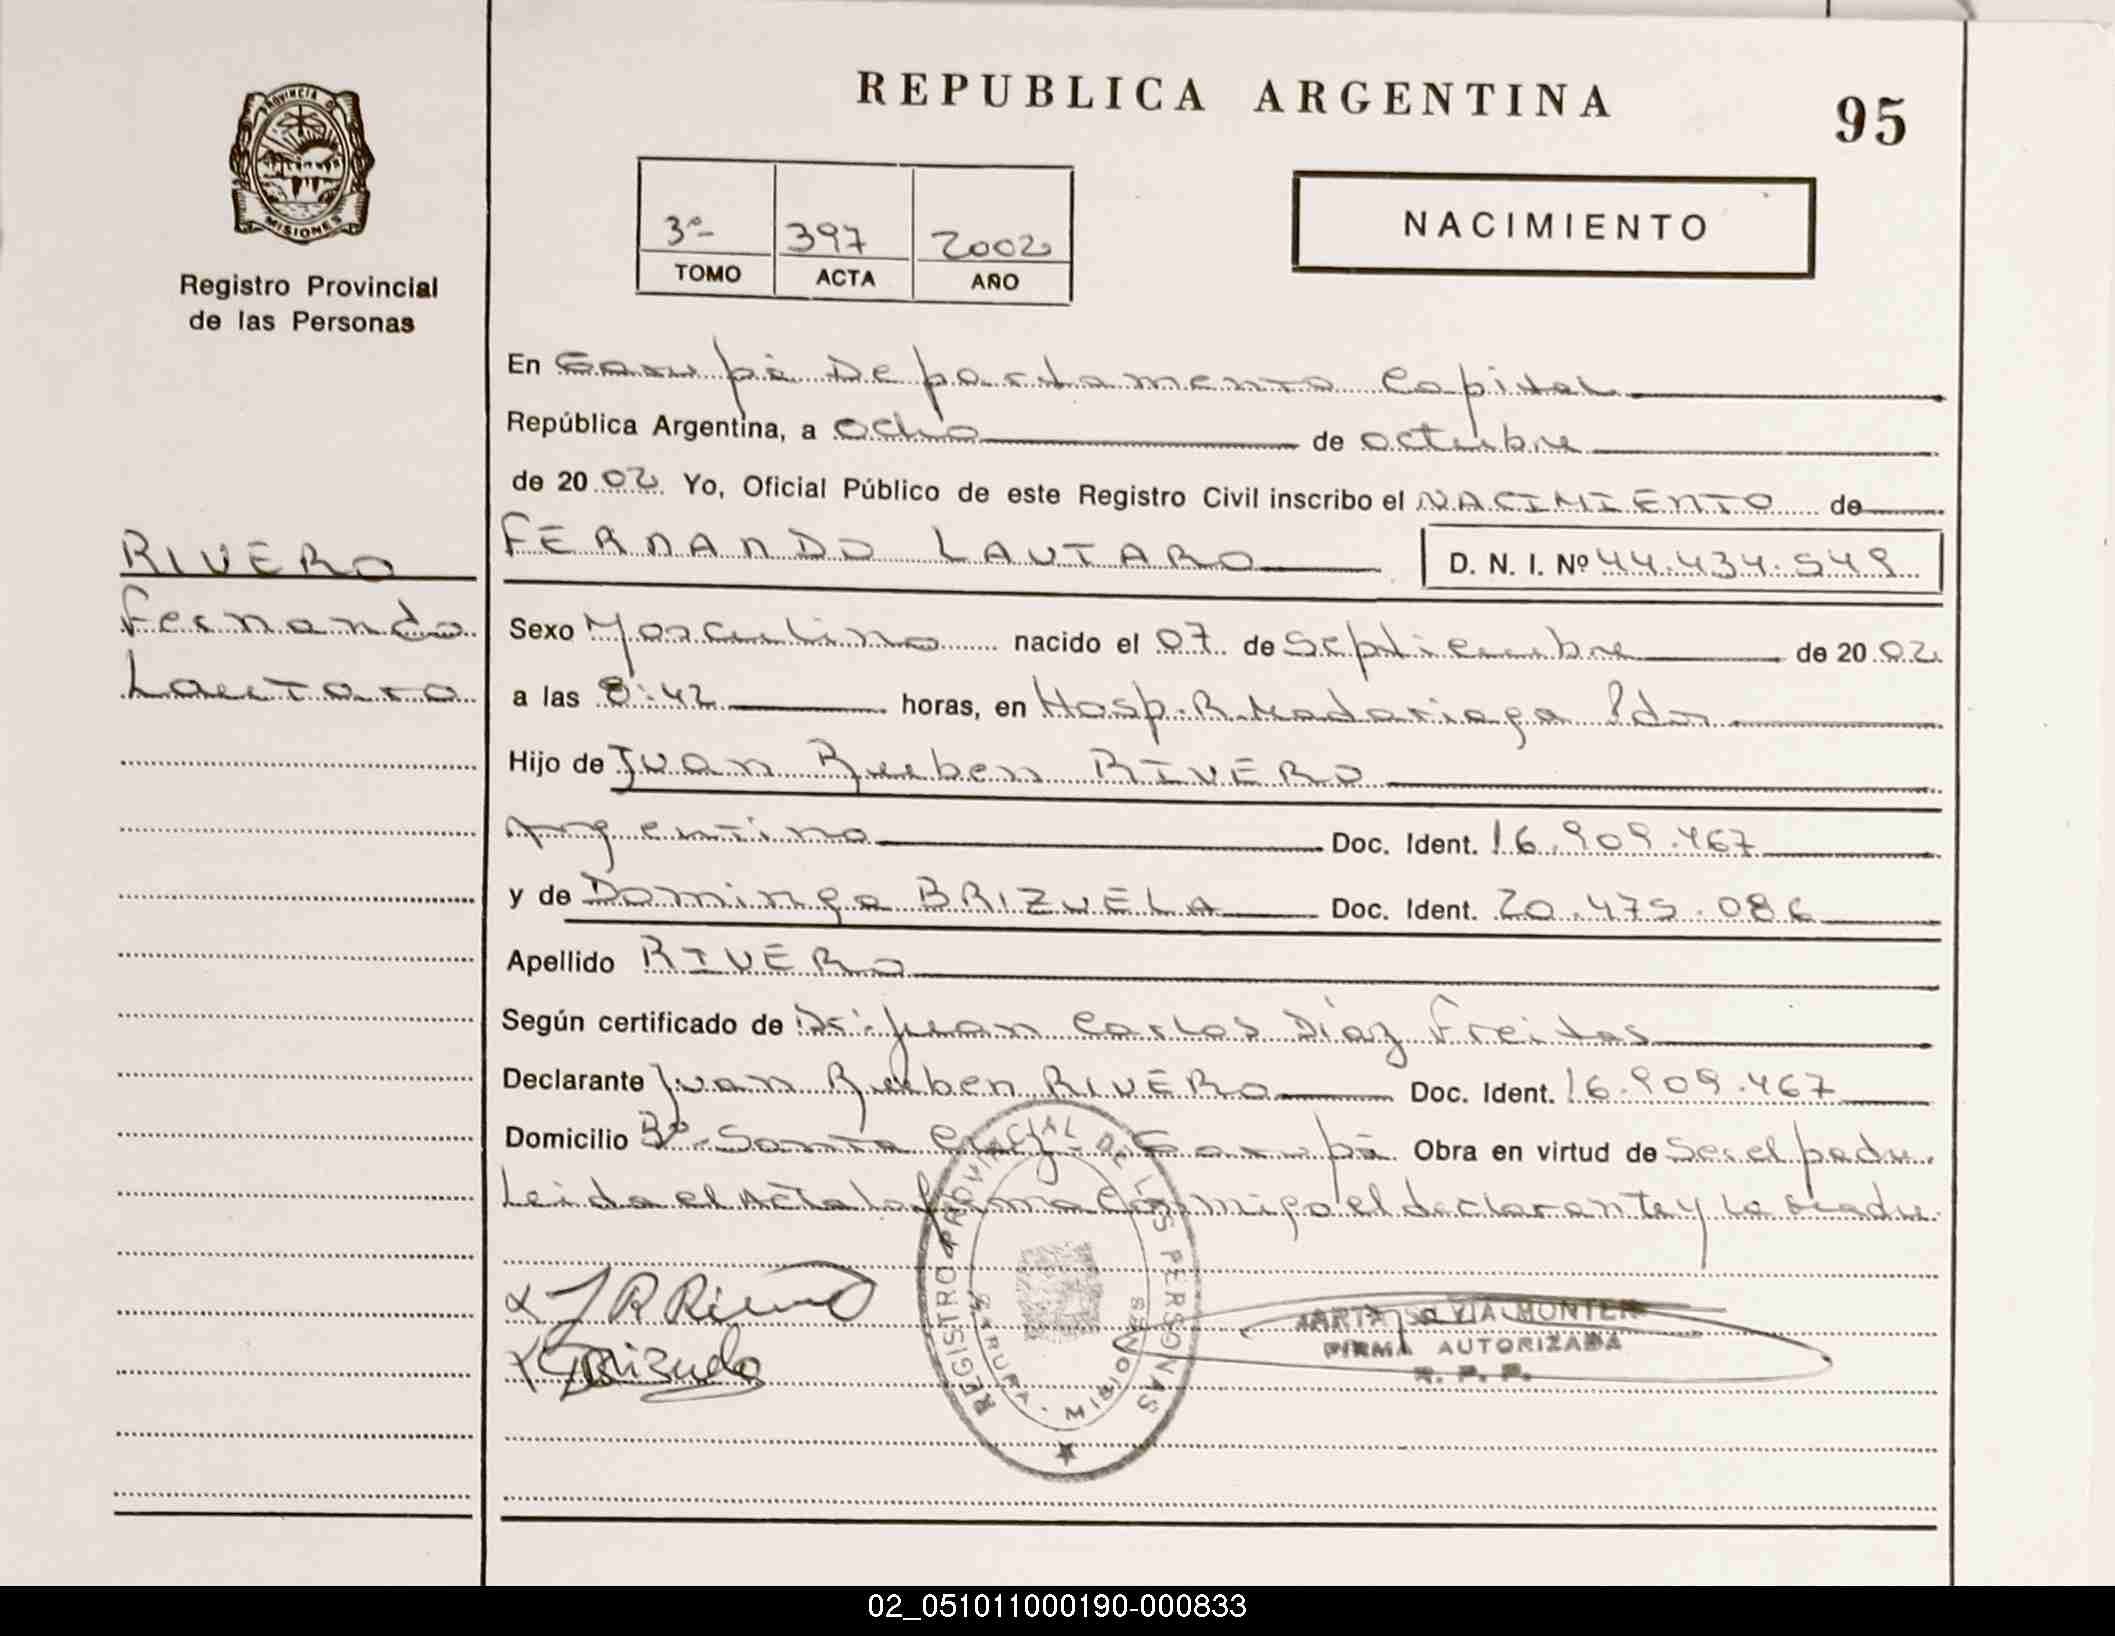 REPUBLICA ARGENTINA
95
PROVINCIA DE
MISIONES
Registro Provincial
de las Personas
3º 397 2002
TOMO ACTA AÑO
NACIMIENTO
En Garupá Departamento Capital
República Argentina, a ocho de octubre
de 2002 Yo, Oficial Público de este Registro Civil inscribo el NACIMIENTO de
RIVERO
Fernando
Lautaro
FERNANDO LAUTARO D. N. I. Nº 44.434.549
Sexo Masculino nacido el 07 de Septiembre de 2002
a las 8:42 horas, en Hosp. R. Madariaga Pdas
Hijo de Juan Rueben RIVERO
Argentino Doc. Ident. 16.909.467
y de Dominga BRIZUELA Doc. Ident. 20.475.086
Apellido RIVERO
Según certificado de Dr. Juan Carlos Díaz Freitas
Declarante Juan Rueben RIVERO Doc. Ident. 16.909.467
Domicilio Bº Santa Cruz - Garupá Obra en virtud de Ser el padre.
Leida el Acta la firma Conmigo el declarante y la madre.
J R Rivero
Brizuela
REGISTRO PROVINCIAL DE LAS PERSONAS
MISIONES
FIRMA AUTORIZADA
R. P. P.
02_051011000190-000833